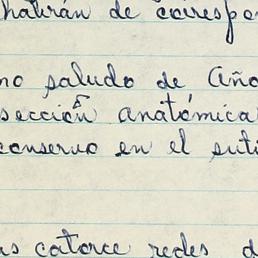 habrán de corespo
no saludo de Año
sección anatómica
conservo en el esti
as catorce redes d